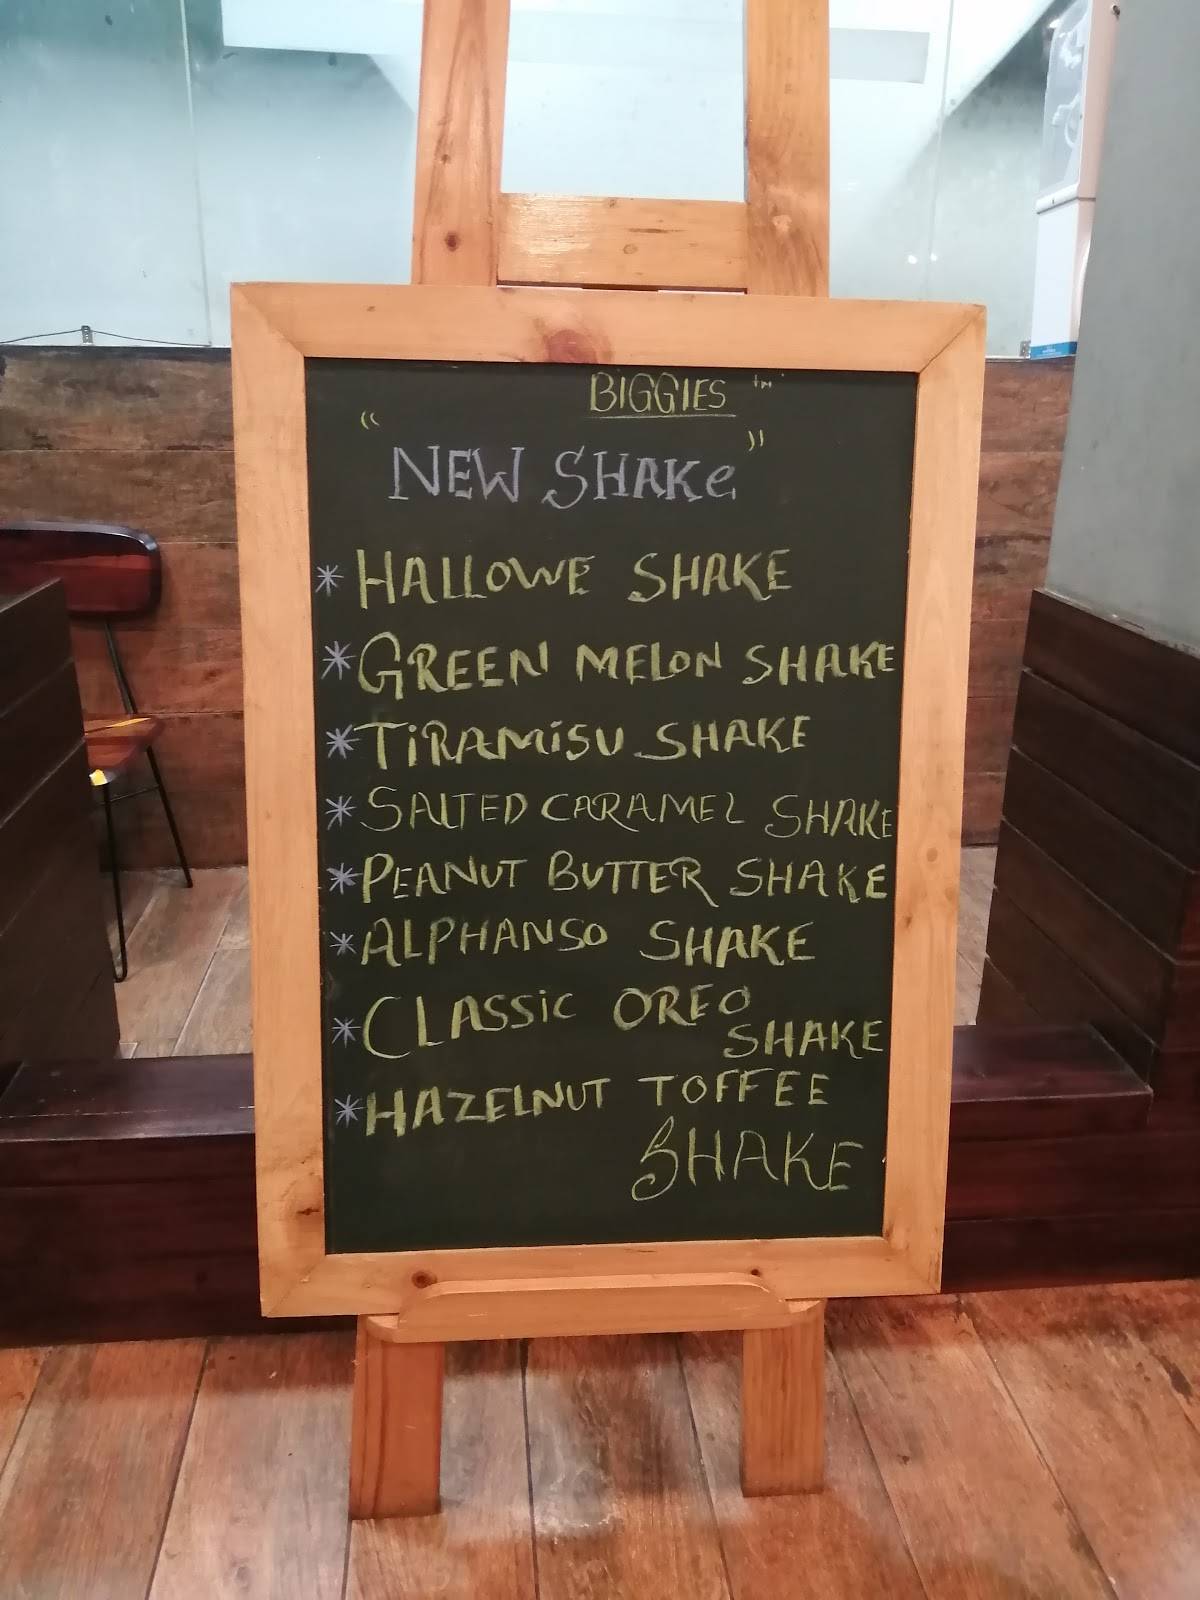 BIGGIES ™
"NEW SHAKe"
* HALLOWE SHAKE
* GREEN MELON SHAKE
* TiRAMiSU SHAKE
* SALTED CARAMEL SHAKE
* PEANUT BUTTER SHAKE
* ALPHANSO SHAKE
* CLASSiC OREO
SHAKE
* HAZELNUT TOFFEE
SHAKE